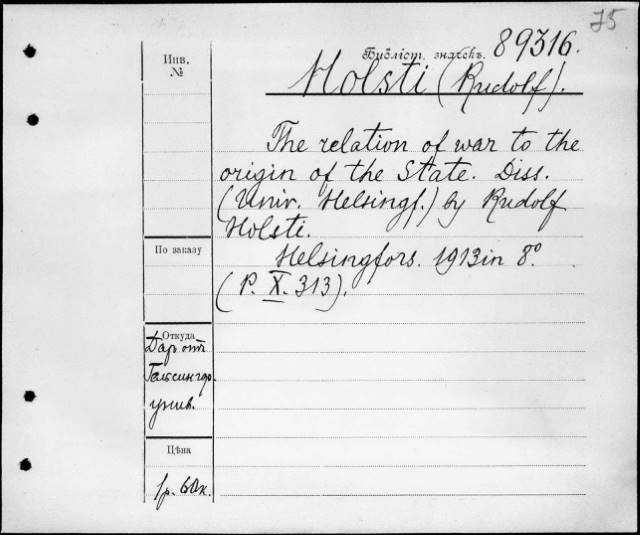 75
Библіот. значекъ. 89316.
Инв.
№
Holsti (Rudolf).
The relation of war to the
origin of the State. Diss.
(Univ. Helsingf.) by Rudolf
Holsti.
Helsingfors. 1913 in 8°.
(P. X. 313).
По заказу
Откуда
Даръ отъ
Гельсингфор.
унив.
Цѣна
1р. 60к.